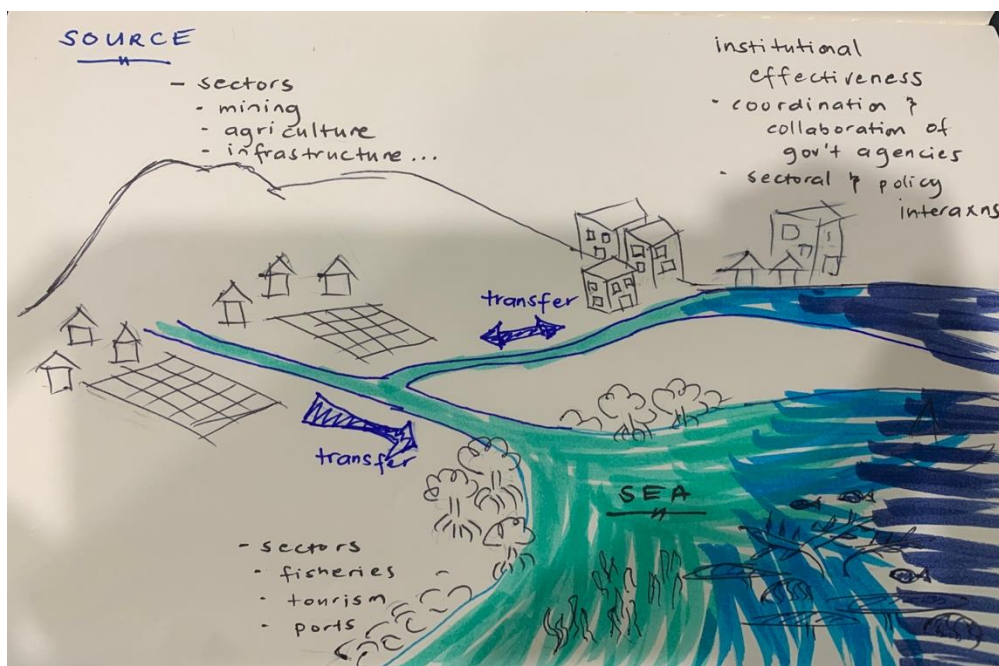 SOURCE
- sectors
- mining
- agriculture
- infrastructure...
institutional
effectiveness
• coordination &
collaboration of
gov't agencies
• sectoral & policy
interaxns
transfer
transfer
SEA
- sectors
• fisheries
• tourism
• ports